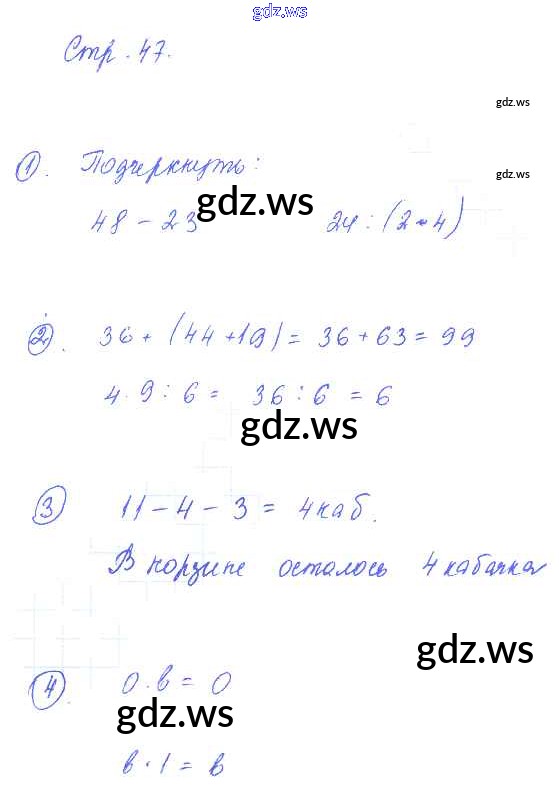 gdz.ws
Стр. 47.
gdz.ws
1. Подчеркнуть:
gdz.ws
gdz.ws
48 - 23 24 : (2 · 4)
2. 36 + (44 + 19) = 36 + 63 = 99
4 · 9 : 6 = 36 : 6 = 6
gdz.ws
3 11 - 4 - 3 = 4 каб.
В корзине осталось 4 кабачка
gdz.ws
4. 0 · в = 0
gdz.ws
в · 1 = в